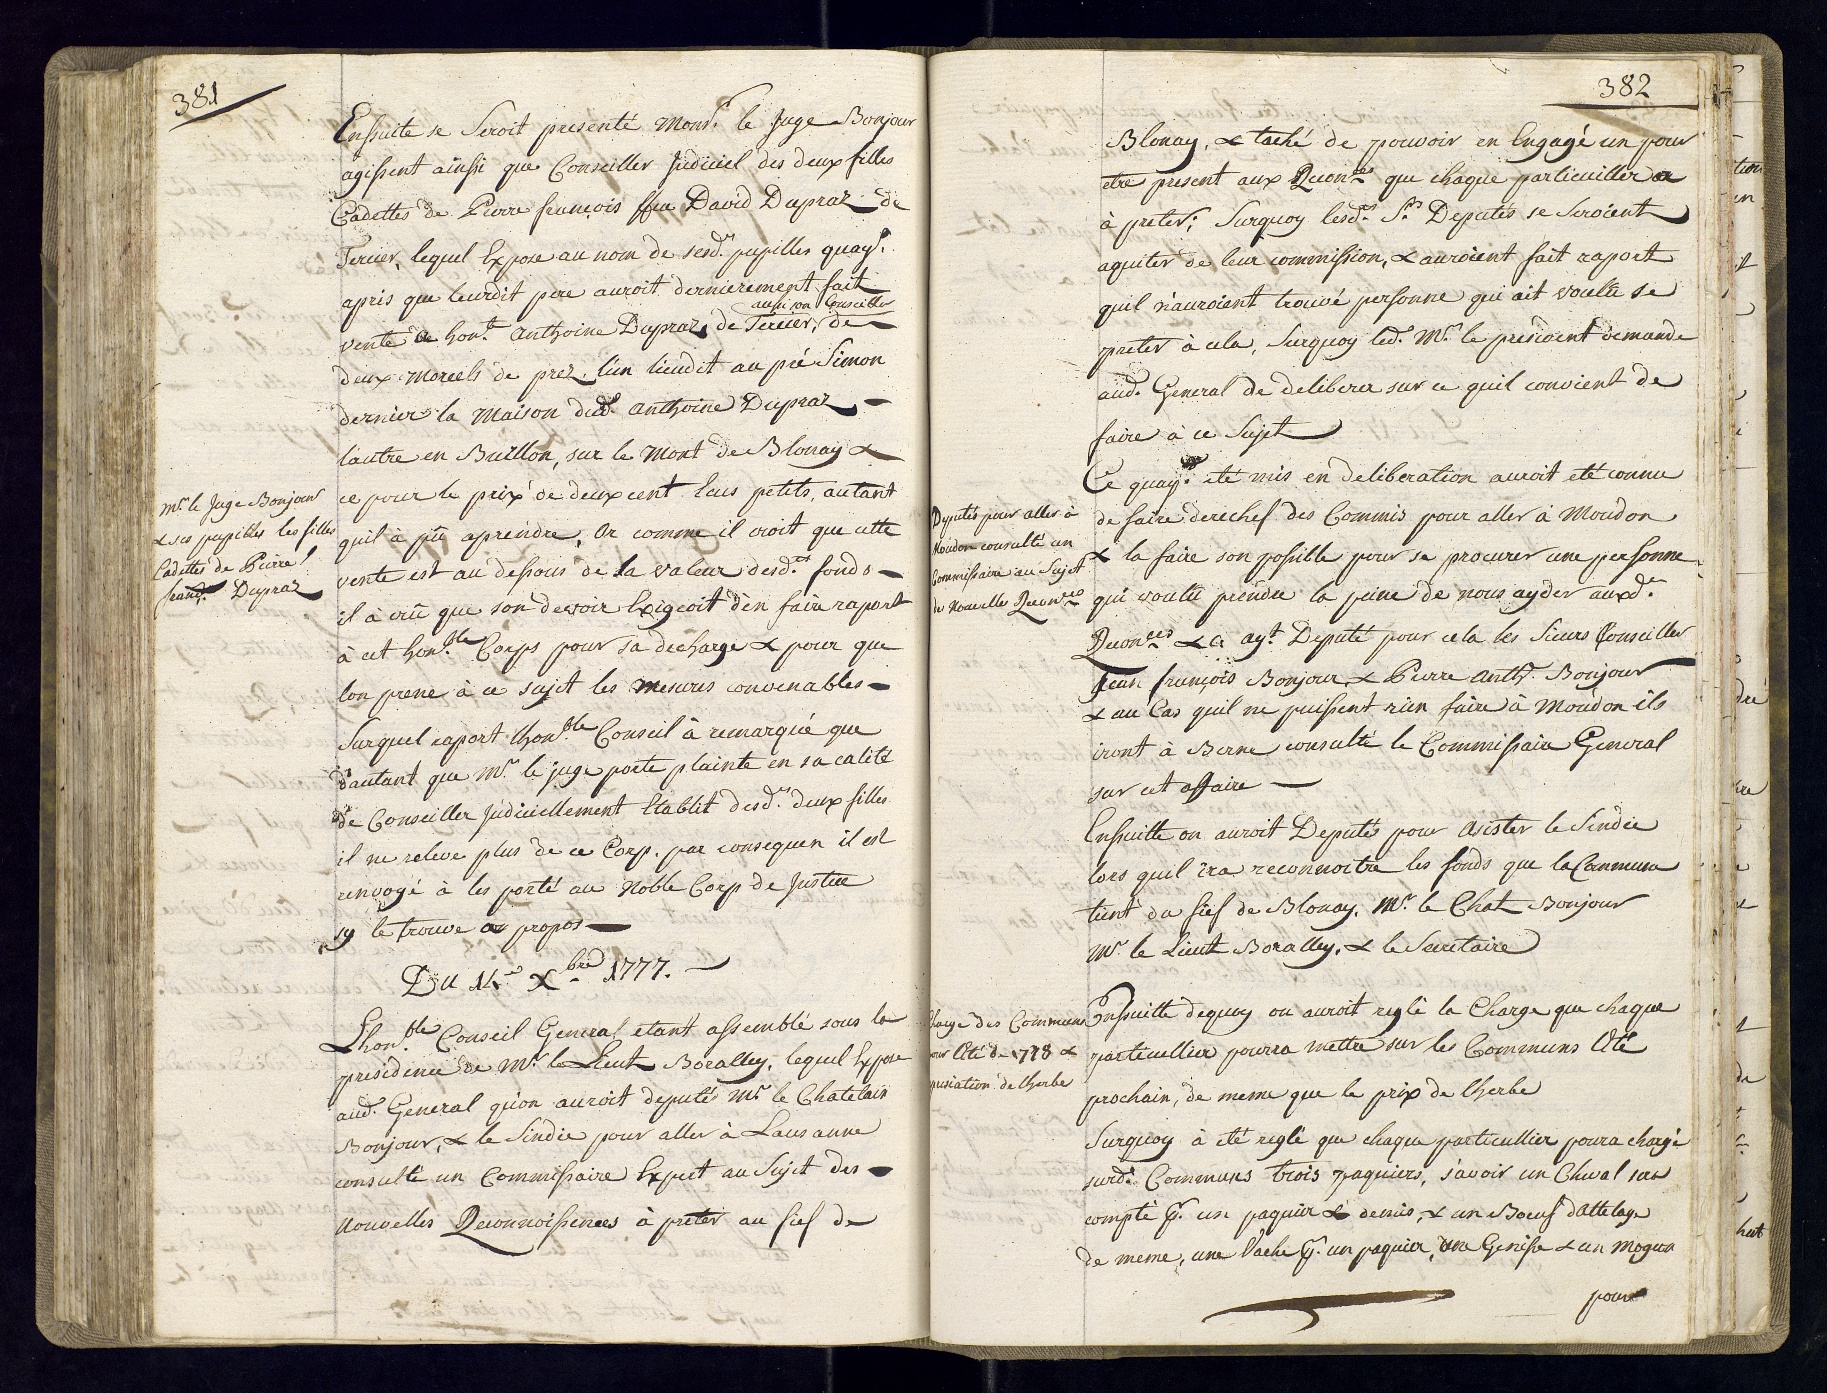 381
Ensuite se Seroit presenté Monsr. le Juge Bonjour
agissent ainsi que Conseiller Judiciel des deux filles
Cadettes de Pierre françois ffeu David Dupraz de
Tercier, lequel Expose au nom de sesd. pupilles quayt.
apris que leurdit pere auroit dernierement fait
aussi son Conseiller
vente a honte. Anthoine Dupraz, de Tercier, de
deux Morcels de prez. lun lieudit au pré Simon
dernier la Maison dud. Anthoine Dupraz
lautre en Buillon, sur le Mont de Blonay &
Mr. le Juge Bonjour
& ses pupilles les filles
Cadettes de Pierre
Dupraz
ce pour le prix de deux cent Ecus petits, autant
quil à pû aprendre, Or comme il croit que cette
vente est au dessous de la valeur desd. fonds
il à crû que son devoir Exigeoit d'en faire raport
à cet honble. Corps pour sa decharge & pour que
lon prene à ce sujet les mesures convenables
Surquel raport lhonble. Conseil à remarqué que
d'autant que Mr. le juge porte plainte en sa calité
de Conseiller Judiciellement Etablit desd. deux filles
il ne releve plus de ce Corp. par consequen il est
renvoyé à les porté au Noble Corp de Justice
sy le trouve a propos
Du 14e Xbre 1777.
Lhonble. Conseil General etant assemblé sous la
presidence de Mr. le Lieut Boralley, lequel Expose
aud. General qu'on auroit deputés Mr. le Chatelain
Bonjour, & le Sindic pour aller à Lausanne
consulté un Commissaire Expert au Sujet des
nouvelles Reconnoissences à preter au fief de
382
Blonay, & taché de pouvoir en Engagé un pour
etre present aux Reconces que chaque particuillier a
à preter; Surquoy lesd. Srs Deputés se Seroient
aquiter de leur commission, & auroient fait raport
quil n'auroient trouvé personne qui ait voulu se
preter à cela, Surquoy led. Mr. le president demande
aud. General de deliberer sur ce quil convient de
faire à ce Sujet
Deputés pour aller à
Moudon consulté un
Commissaire au Sujet
de Nouvelles Reconces
Ce quayt. eté mis en deliberation auroit eté connu
de faire derechef des Commis pour aller à Moudon
& la faire son possible pour se procurer une personne
qui voulu prendre la peine de nous ayder auxd.
Reconces & a ayt. Deputé pour cela les Sieurs Conseiller
Jean françois Bonjour, & Pierre Anth. Bonjour
& au Cas quil ne puissent rien faire à Moudon ils
iront à Berne consulté le Commissaire General
sur cet affaire
Ensuitte on auroit Deputés pour Asister le Sindic
lors quil ira reconnoitre les fonds que la Commune
tient du fief de Blonay, Mr. le Chat Bonjour
Mr. le Lieut Boralley, & le Secretaire
Charge des Communs
pour Eté de 1778 &
de lherbe
Ensuitte dequoy on auroit reglé la Charge que chaque
particuillier pourra mettre sur les Communs lEté
prochain, de meme que le prix de lherbe
Surquoy à eté reglé que chaque particuillier poura chargé
surd. Communs trois paquiers, savoir un Cheval sera
compté p. un paquier & demis, & un Boeuf dAttelage
de meme, une Vache p. un paquier, une Genisse & un Mogeon
pour